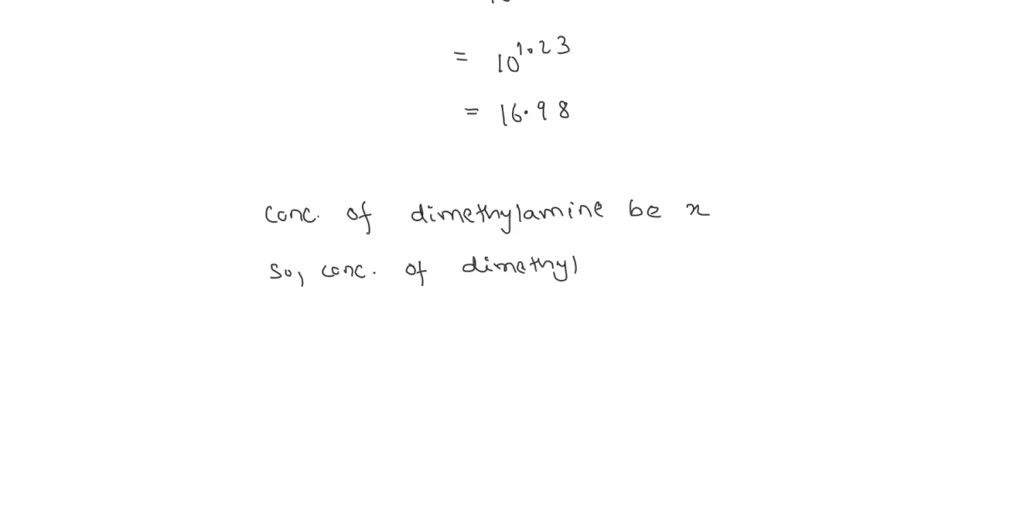 = 10^1.23
= 16.98
conc. of dimethylamine be x
so, conc. of dimethyl